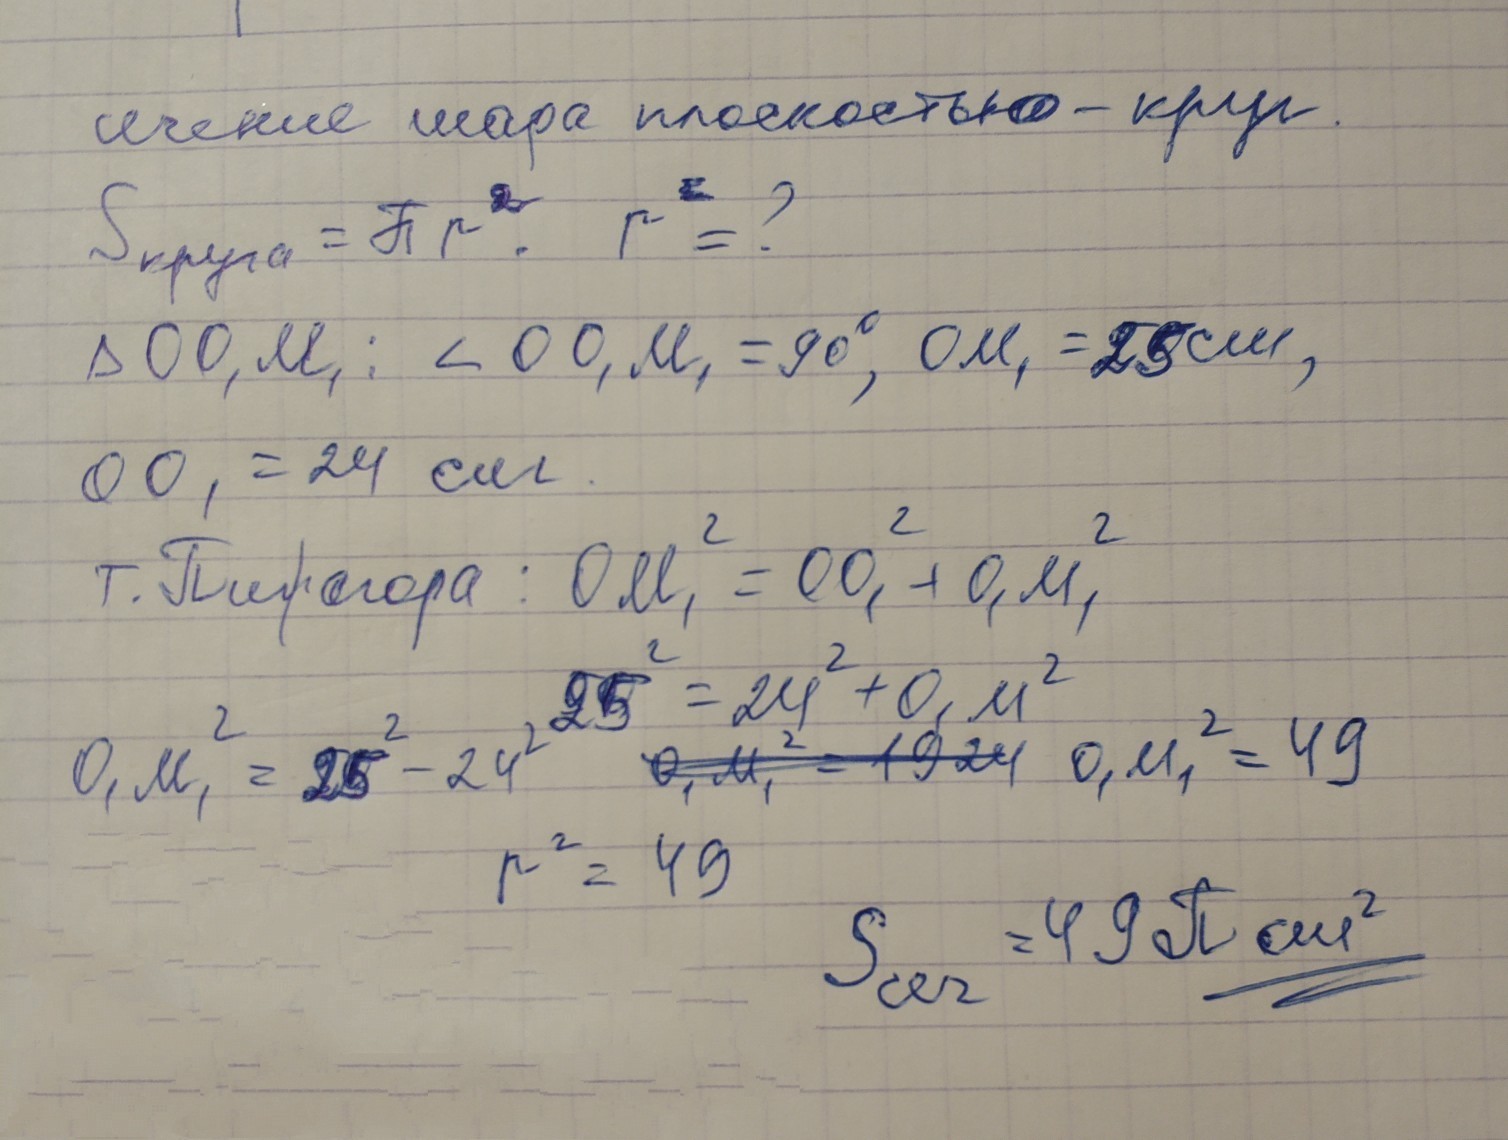 сечение шара плоскостью – круг.
Sкруга = πr². r² = ?
△OO₁M₁: ∠OO₁M₁ = 90°, OM₁ = 25 см,
OO₁ = 24 см.
т. Пифагора: OM₁² = OO₁² + O₁M₁²
25² = 24² + O₁M²
O₁M₁² = 25² – 24² O₁M₁² = 1924 O₁M₁² = 49
r² = 49
Sсеч = 49π см²